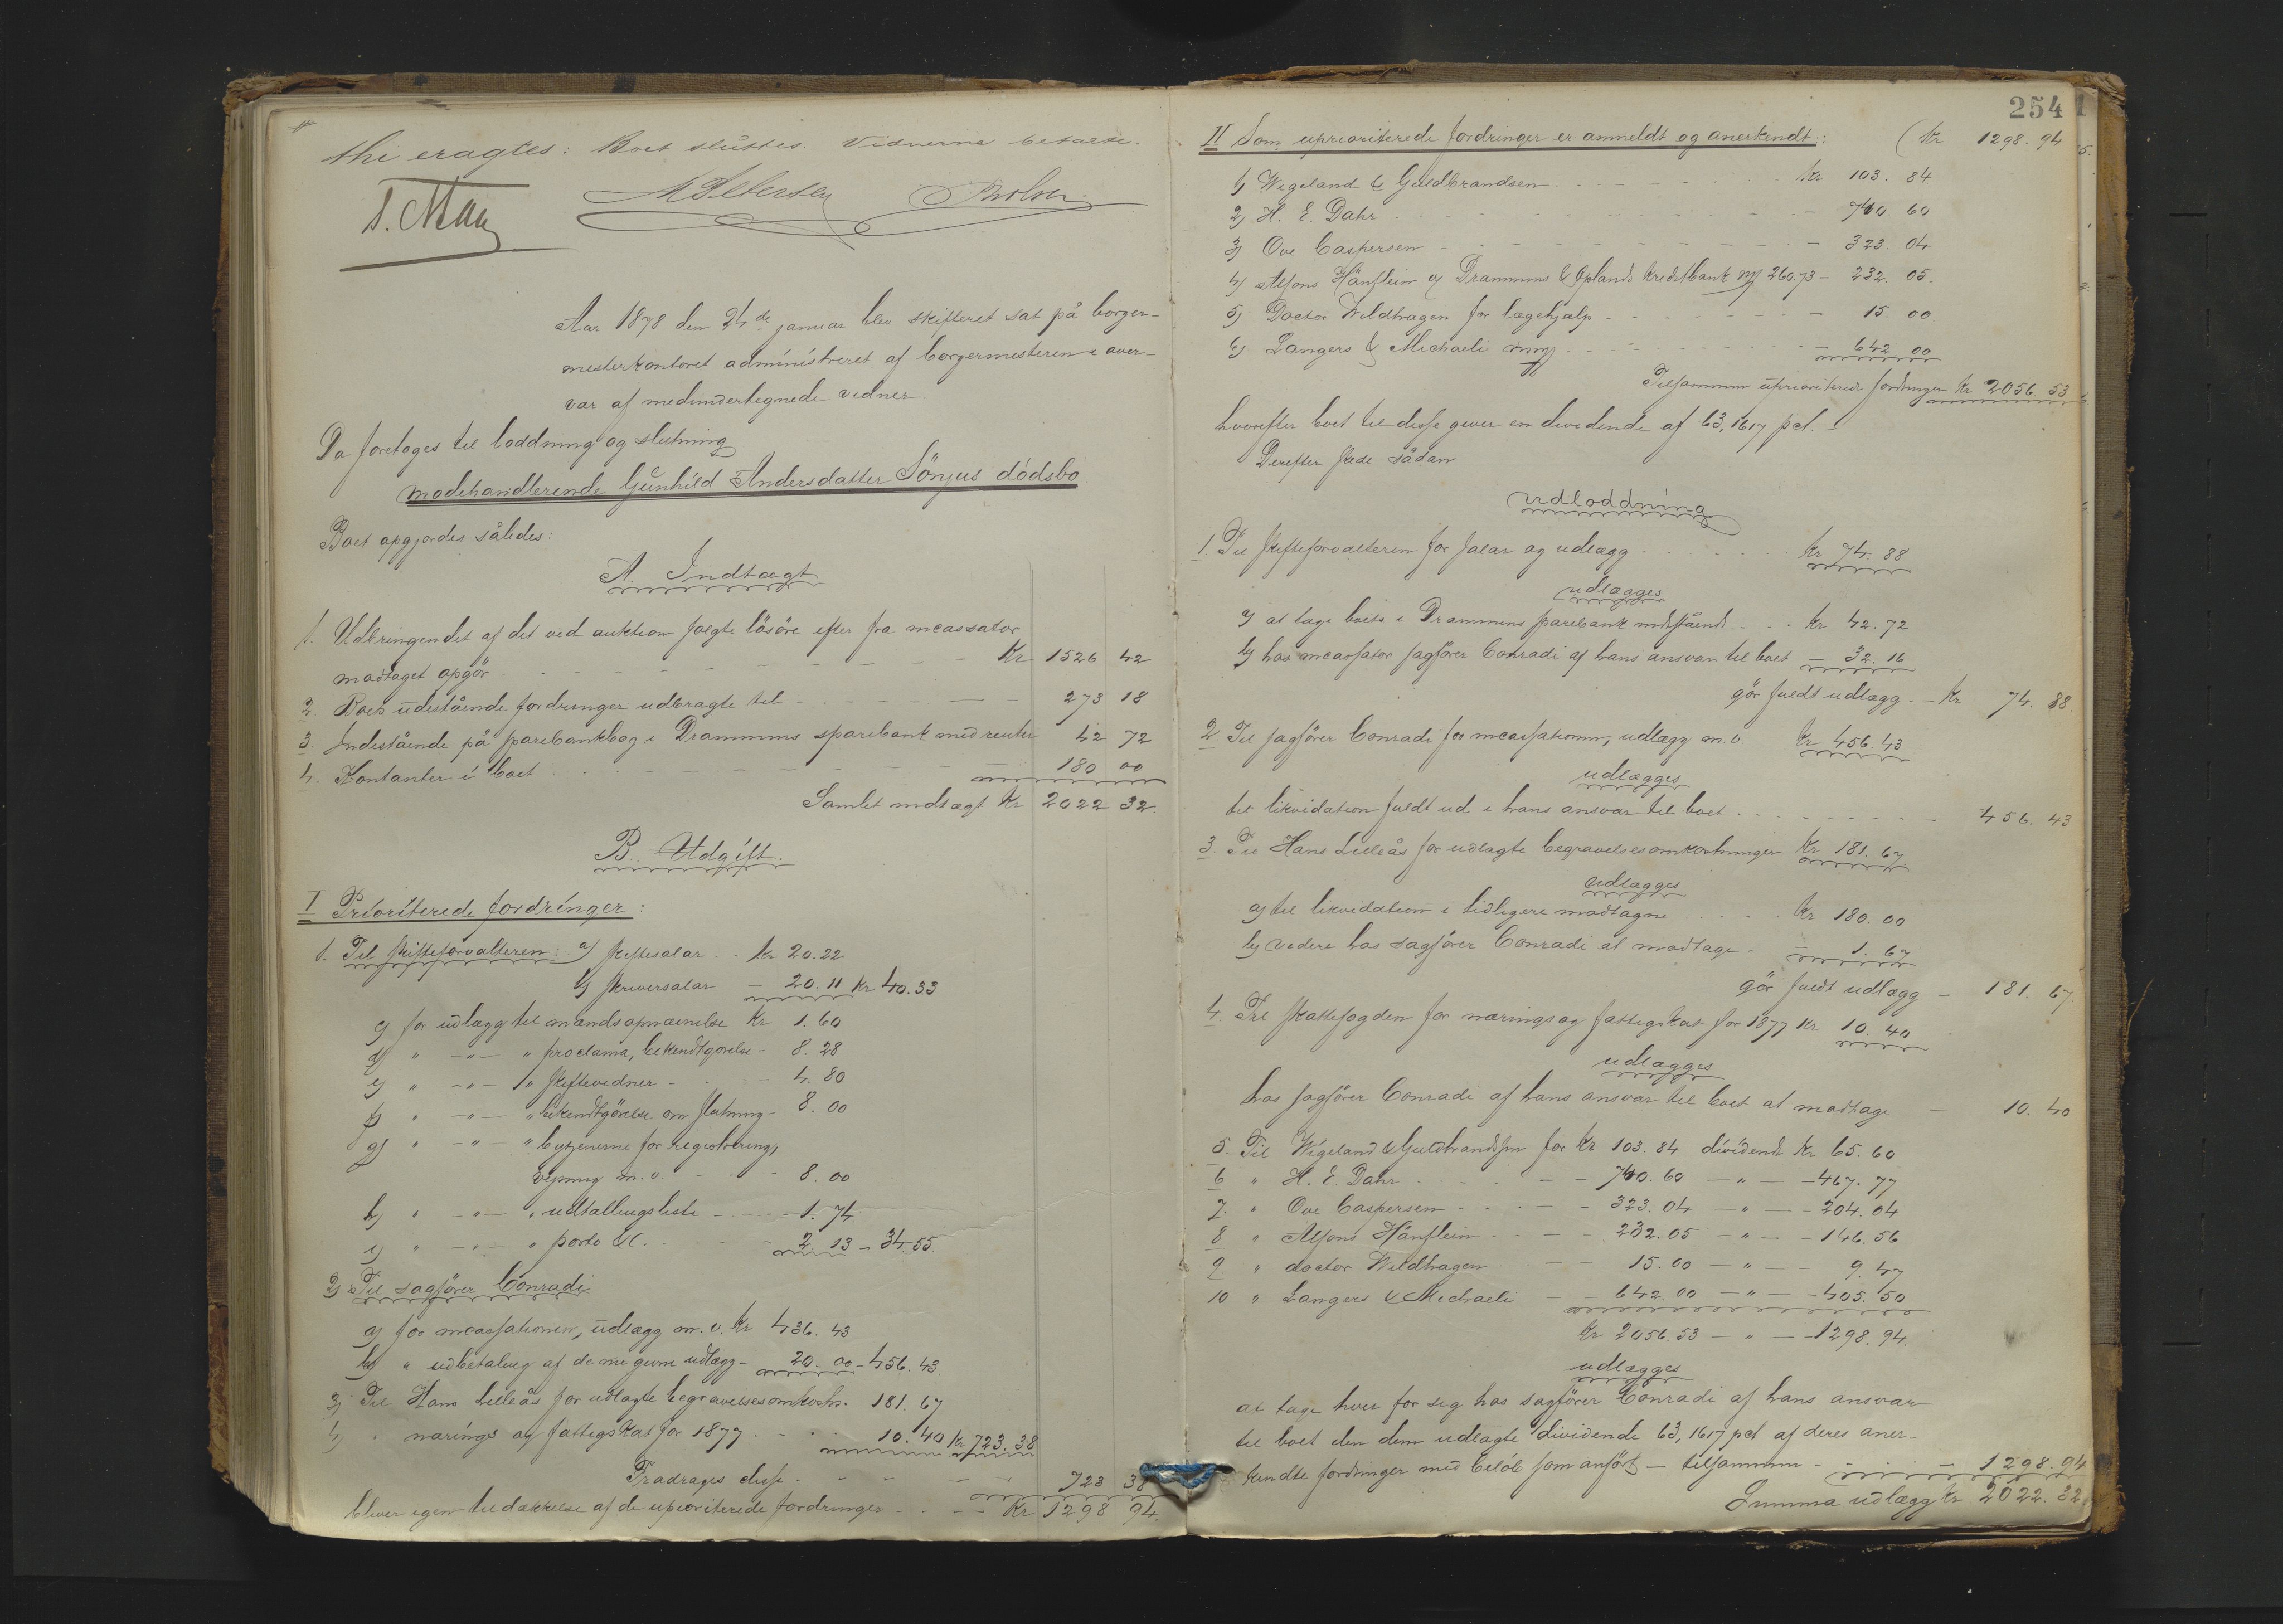 thi eragtes: Boet sluttes. Vidnerne betalte.
Aar 1878 den 24de januar blev skifteret sat på borger-
mesterkontoret administreret af borgermesteren i over-
vær af medundertegnede vidner.
Da foretoges til loddning og slutning
modehandlerende Gunhild Andersdatter Sönjus dödsbo
Boet opgjordes således:
A. Indtægt
1. Udbringendet af det ved auktion solgte lösöre efter fra incassator
modtaget opgör - - - Kr 1526 42
2 Boets udestående fordringer udbragte til - - - 273 18
3 Indestående på sparebankbog i Drammens sparebank med renter 42 72
4. Kontanter i boet - - - 180 00
Samlet indtægt Kr 2022 32.
B. Udgift.
I Prioriterede fordringer:
1. Til skifteforvalteren: a) skiftesalar . . kr 20.22
b) skriversalar - 20.11 Kr 40.33
c) for udlæg til mandsopnævnelse Kr 1.60
d) " -"- " proclama, bekendtgörelse - 8.28
e) " -"- " skiftevidner - - 4.80
f) " -"- " bekendtgörelse om slutning - 8.00
g) " -"- " bytjenerne for registrering,
m.v. - - - 8.00
h) " -"- " udtallingsliste - - - 1.74
i) " -"- " porto &c. - - - 2.13 - 34.55
2) Til sagförer Conradi
a) for incassationen, udlægg m.v. Kr 436.43
b) " udbetaling af de her givne udlægg - 20.00 - 456.43.
3) Til Hans Lilleås for udlagte begravelsesomkostn. 181.67
4) " nærings og fattigskat for 1877 . . . 10.40 Kr 723.38
Fradrages disse - - - 723 38
bliver igen til dækkelse af de uprioriterede fordringer - - - Kr 1298 94.
254
II Som uprioriterede fordringer er anmeldt og anerkendt: (Kr 1298.94
1) Wigeland & Guldbrandsen - - - Kr 103.84
2) H. E. Dahr - - - 740.60
3) Ove Caspersen - - - 323.04
4) Alfons Hänflein og Drammens & Oplands Kreditbank 260.73 - 232.05.
5) Doctor Wildhagen for lægehjælp - - - 15.00
6) Langers & Michaeli - - - 642 00
Tilsammen uprioriterede fordringer Kr 2056 53
hvorefter boet til disse giver en dividende af 63,1617 pct.
Derefter skede sådan
Udloddning
1. Til skifteforvalteren for salar og udlægg . . . Kr 74.88
udlægges
a) at tage boets i Drammens sparebank indestående . . . Kr 42.72
b) hos incassator sagförer Conradi af hans ansvar til boet - 32.16
gör fuldt udlægg - Kr 74.88.
2 Til sagförer Conradi for incassationen, udlægg m.v. Kr 456.43
udlægges
til likvidation fuldt ud i hans ansvar til boet - - - 456.43
3. Til Hans Lilleås for udlagte begravelsesomkostninger Kr 181.67.
udlægges
a) til likvidation i tidligere modtagne . . . Kr 180.00
b) videre hos sagförer Conradi at modtage - 1.67
gör fuldt udlægg - 181.67.
4. Til skattefogden for nærings og fattigskat for 1877 Kr 10.40
udlægges
hos sagförer Conradi af hans ansvar til boet at modtage - 10.40
5. Til Wigeland & Guldbrandsen for Kr 103.84 dividende Kr 65.60
6 " H. E. Dahr - - - 740.60 - " - - 467.77
7. " Ove Caspersen - - - 323.04 - " - - 204.04
8 " Alfons Hänflein - - - 232.05 - " - - 146.56
9. " doctor Wildhagen - - - 15.00 - " - - 9.47
10 " Langers & Michaeli - - 642.00 - " - - 405.50
Kr 2056.53 - " - - 1298.94.
udlægges
at tage hver for sig hos sagförer Conradi af hans ansvar
til boet den dem udlagte dividende 63,1617 pct af deres aner-
kendte fordringer med belöb som anfört - tilsammen - - - 1298.94
Summa udlægg Kr 2022.32